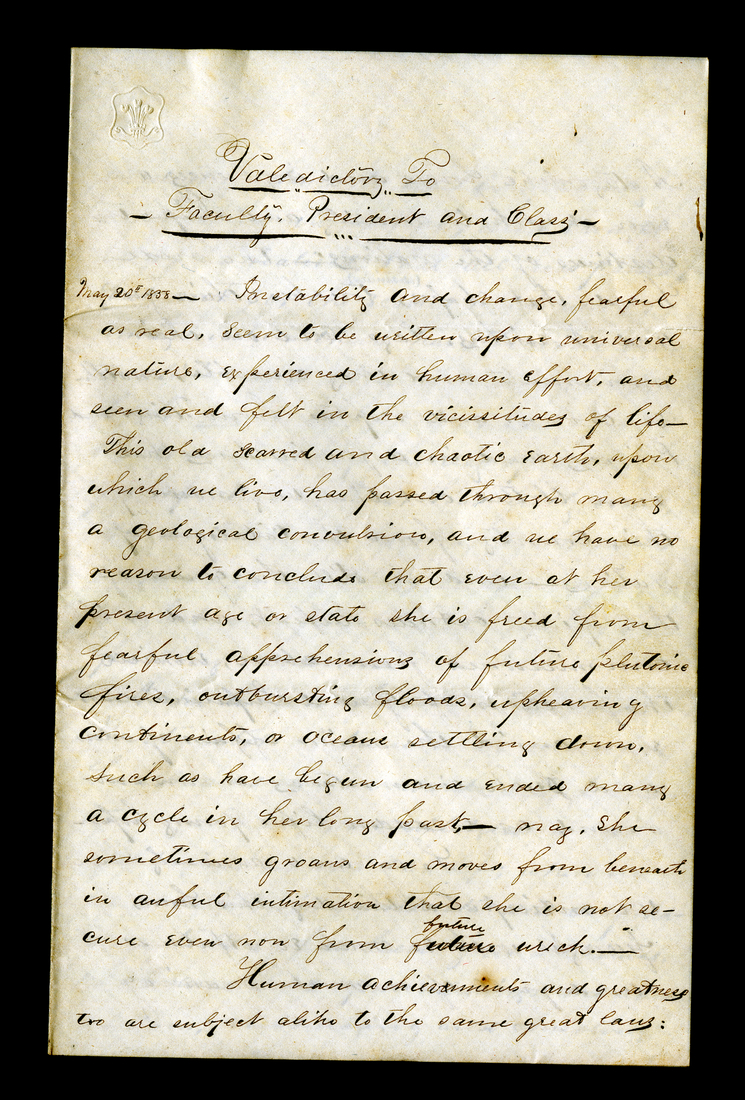 Valedictory To
– Faculty, President and Class –
May 20th 1858 — Instability and change, fearful
as real, seem to be written upon universal
nature, experienced in human effort, and
seen and felt in the vicissitudes of life—
This old scarred and chaotic earth, upon
which we live, has passed through many
a geological convulsion, and we have no
reason to conclude that even at her
present age or state she is freed from
fearful apprehensions of future plutonic
fires, outbursting floods, upheaving
continents, or oceans settling down,
such as have begun and ended many
a cycle in her long past,— nay, she
sometimes groans and moves from beneath
in awful intimation that she is not se-
cure even now from future wreck.—
Human achievements and greatness
too are subject alike to the same great laws: